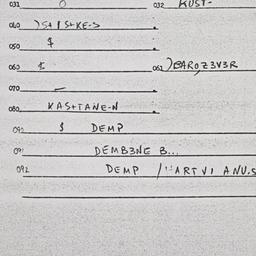 031 032 KUST-
040 )S+IS+KE-S
050
060 062 )BAROZ3V3R
070
080 KAS+TANE-N
090 $ DEMP
091 DEMB3NE B...
092 DEMP /"ARTVI ANU.S